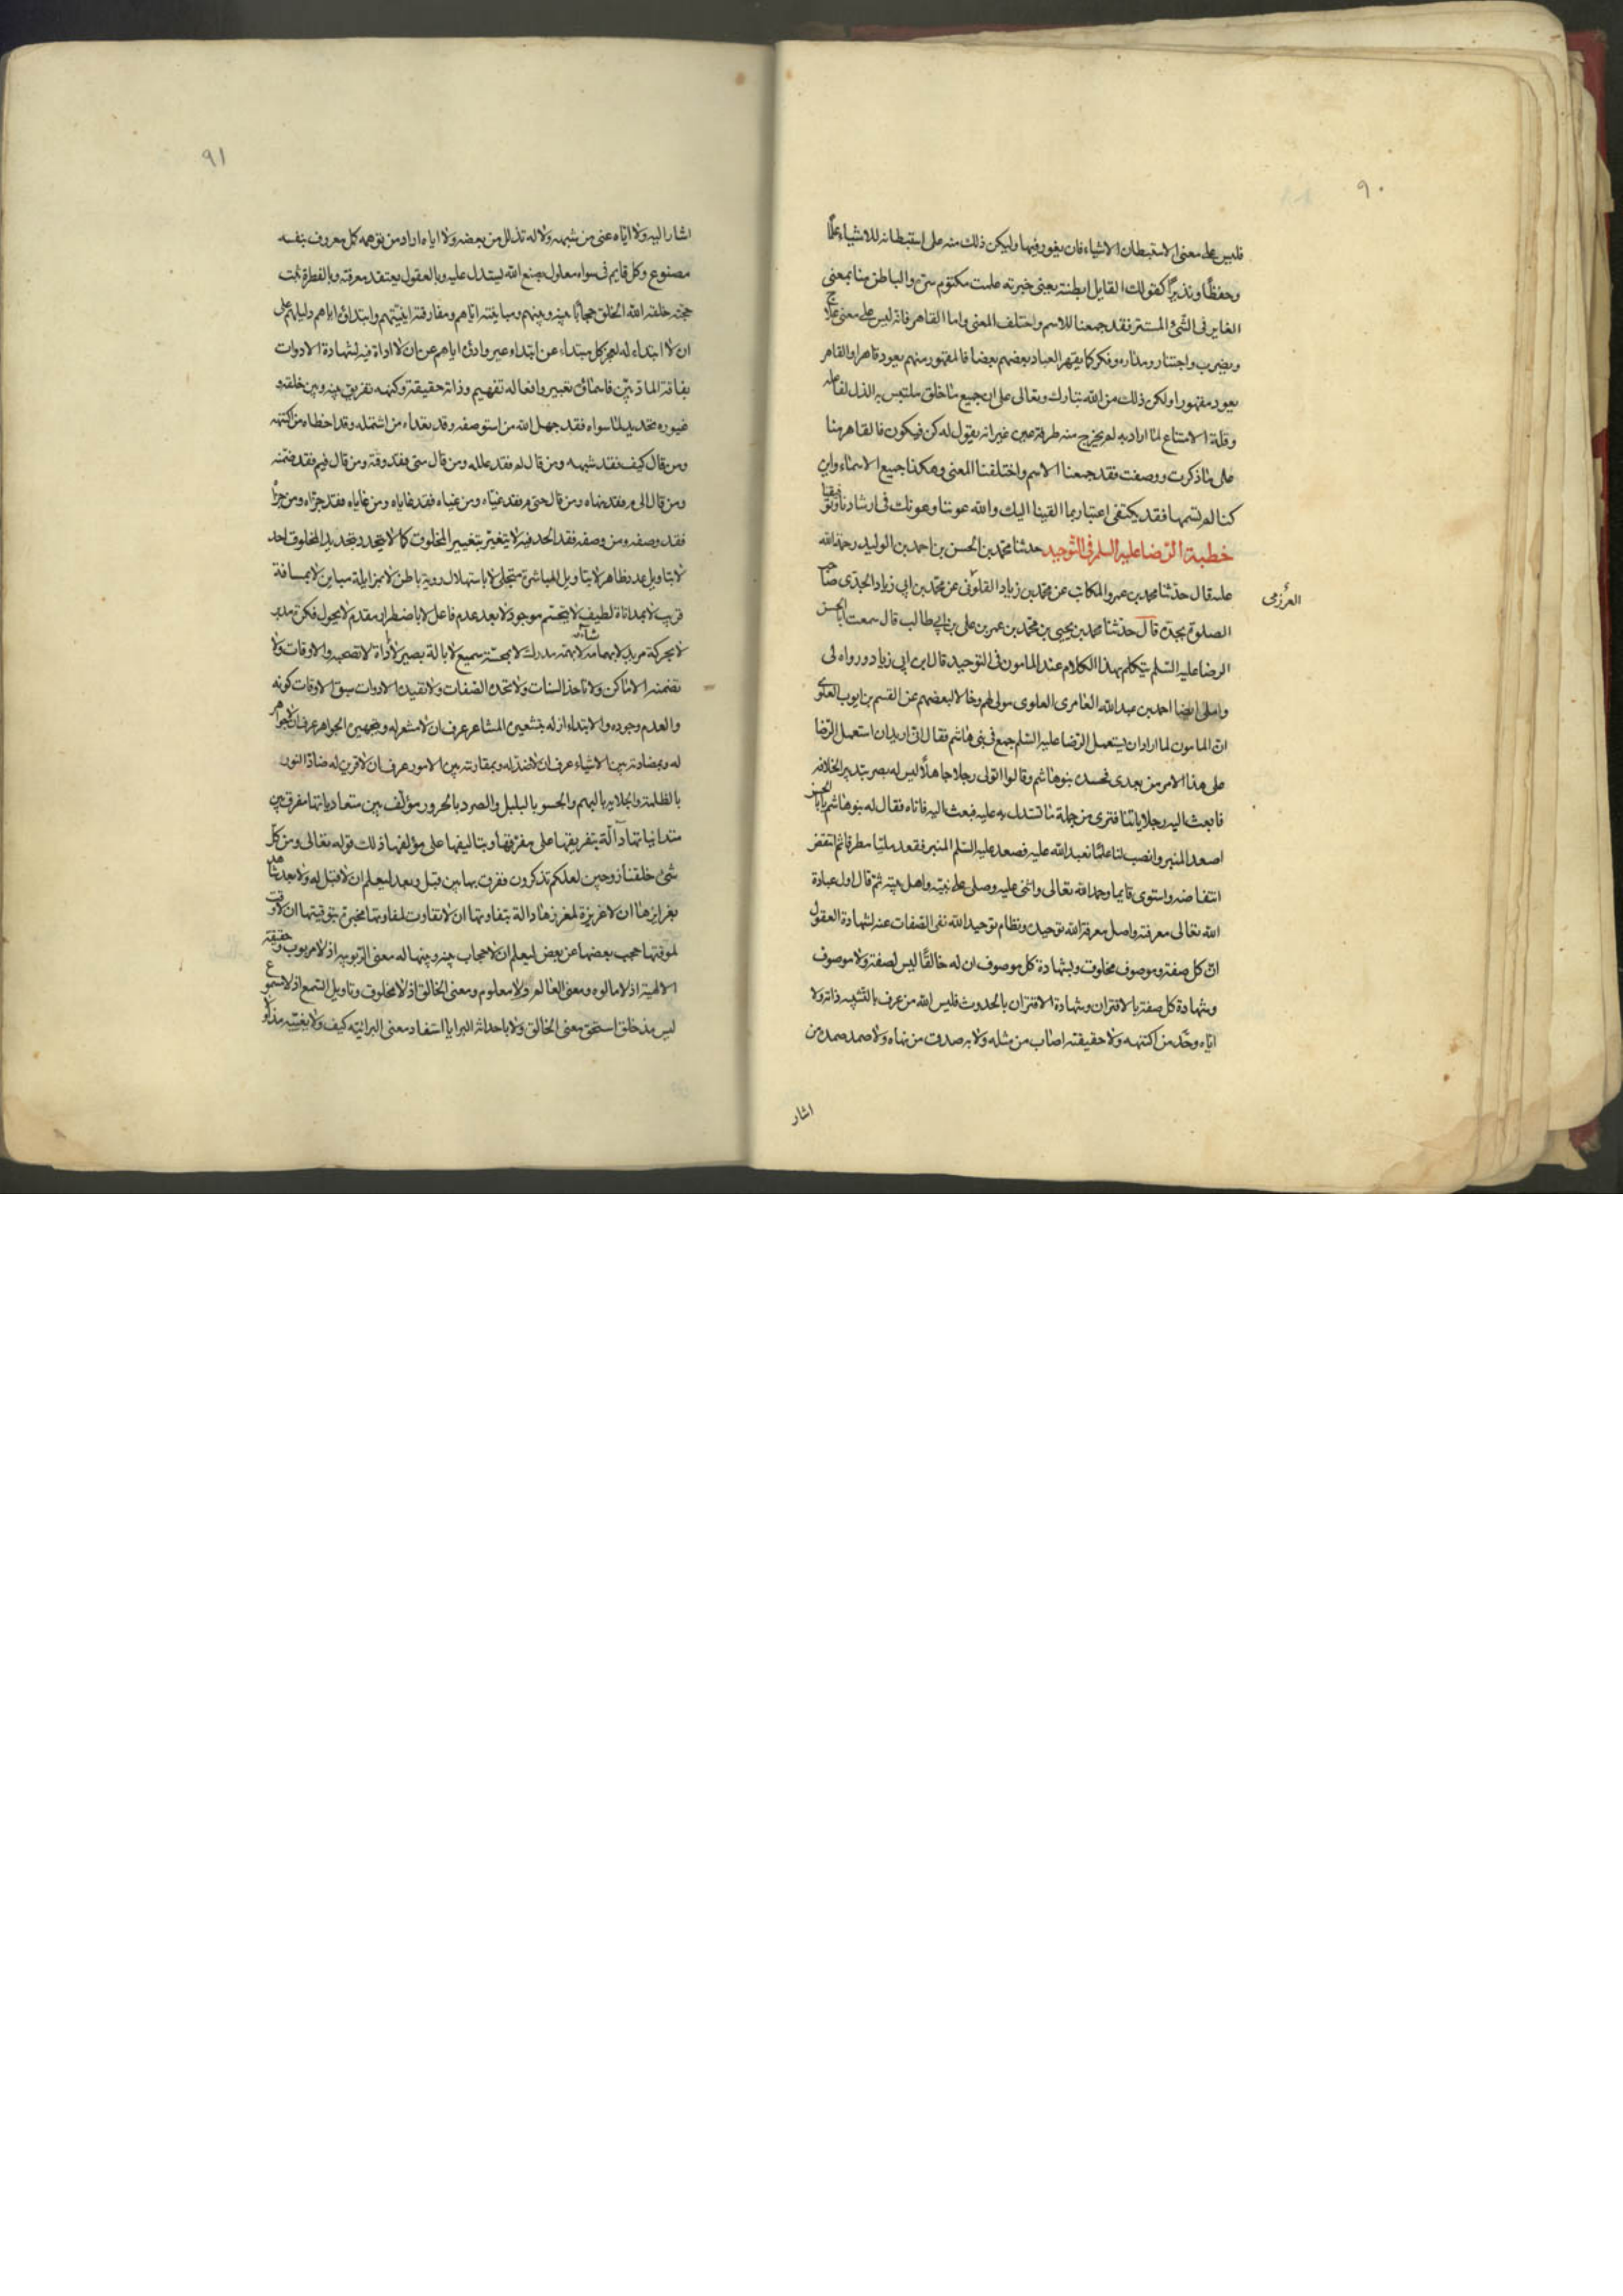 ٩٠
فليس على معنى الاستبطان الاشياء فان يغور فيها وليكن ذلك منه على استبطانه للاشياء علما
وحفظا وتدبيرا كقولك القايل ابطنته يعنى خبرته علمت مكتوم سره والباطن منا بمعنى
الغاير فى الشئ المستتر فقد جمعنا للاسم واختلف المعنى واما القاهر فانه ليس على معنى علاج
ونصب واحتتار ومداره وفكر كما يقهر العباد بعضهم بعضا فالمقهور منهم يعود قاهرا والقاهر
يعود مقهورا ولكن ذلك من الله تبارك وتعالى على ان جميع ما خلق ملتبس به الذل لفاعله
وقلة الامتناع لما اراد به لم يخرج منه طرفة عين غير انه يقول له كن فيكون فالقاهر منا
على ما ذكرت ووصفت فقد جمعنا الاسم واختلفنا المعنى وهكذا جميع الاسماء وان
كنا لم نسمها فقد يكتفى اعتبار بما القينا اليك والله عوننا وعونك فى ارشادنا وتوفيقنا
خطبة الرضا عليه السلم فى التوحيد حدثنا محمد بن الحسن بن احمد بن الوليد رحمة الله
عليه قال حدثنا محمد بن عمرو المكاتب عن محمد بن زياد القلونى عن محمد بن ابى زياد الجدى صاحب
العرزمى
الصلوة بجدة قال حدثنا محمد بن يحيى بن محمد بن عمر بن على بن ابى طالب قال سمعت ابا الحسن
الرضا عليه السلم يتكلم بهذا الكلام عند المامون فى التوحيد قال ابن ابى زياد ورواه لى
واملى ايضا احمد بن عبد الله العامرى العلوى مولى لهم وخالا لبعضهم عن القسم بن ايوب العلوى
ان المامون لما اراد ان يستعمل الرضا عليه السلم جمع فى بنى هاشم فقال انى اريد ان استعمل الرضا
على هذا الامر من بعدى فحسده بنو هاشم وقالوا اتولى رجلا جاهلا ليس له بصر بتدبير الخلافه
فابعث اليه رجلا ياتنا فترى من جهله ما تستدل به عليه فبعث اليه فاتاه فقال له بنو هاشم يا ابا الحسن
اصعد المنبر وانصب لنا علما نعبد الله عليه فصعد عليه السلم المنبر فقعد مليا مطرقا ثم انتفض
انتفاضه واستوى قايما وحمد الله تعالى واثنى عليه وصلى على نبيه واهل بيته ثم قال اول عبادة
الله تعالى معرفته واصل معرفة الله توحيده ونظام توحيد الله نفى الصفات عنه لشهادة العقول
ان كل صفة وموصوف مخلوق وبشهادة كل موصوف ان له خالقا ليس لصفة ولا موصوف
وشهادة كل صفة بالاقتران وشهادة الاقتران بالحدوث فليس الله من عرف بالتشبيه ذاته ولا
اياه وحد من اكتنهه ولا حقيقته اصاب من مثله ولا به صدق من نهاه ولا صمد صمده من
اشار
٩١
اشار اليه ولا اياه عنى من شبهه ولا له تذلل من بعضه ولا اياه اراد من توهمه كل معروف بنفسه
مصنوع وكل قايم فى سواه معلول بصنع الله ليستدل عليه وبالعقول يعتقد معرفته وبالفطرة تثبت
حجته خلقة الله الخلق حجابا بينه وبينهم ومباينته اياهم ومفارقته اينيتهم وابتداؤه اياهم دليلهم على
ان لا ابتداء له لعجز كل مبتداء عن ابتداء غيره وادوه اياهم عن ان لا اداة فيه لشهادة الادوات
بفاقة المادين فاسماؤه تعبير وافعاله تفهيم وذاته حقيقة وكنهه تفريق بينه وبين خلقه و
غيوره تحديد لما سواه فقد جهل الله من استوصفه وقد تعداه من اشتمله وقد اخطاه من اكتنهه
ومن قال كيف فقد شبهه ومن قال لم فقد علله ومن قال متى فقد وقته ومن قال فيم فقد ضمنه
ومن قال الى م فقد نهاه ومن قال حتى م فقد غياه ومن غياه فقد غاياه ومن غاياه فقد جزاه ومن جزاه
فقد وصفه ومن وصفه فقد الحد فيه لا يتغير بتغيير المخلوق كما لا يتحدد بتحديد المخلوق احد
لا بتاويل عدد ظاهر لا بتاويل المباشرة متجلى لا باستهلال روية باطن لا بمزايلة مباين لا بمسافة
قريب لا بمداناة لطيف لا بتجسم موجود لا بعد عدم فاعل لا باضطرار مقدر لا بحول فكرة مدبر
لا بحركة مريد لا بهمامة شاء لا بهمة مدرك لا بمجسة سميع لا بالة بصير لا باداة لا تصحبه الاوقات ولا
تضمنه الاماكن ولا تاخذ السنات ولا تحده الصفات ولا تقيده الادوات سبق الاوقات كونه
والعدم وجوده والابتداء ازله بتشعيره المشاعر عرف ان لا مشعر له وبتجهيره الجواهر عرف ان لا جوهر
له وبمضادته بين الاشياء عرف ان لا ضد له وبمقارنته بين الامور عرف ان لا قرين له ضاد النور
بالظلمة والجلايه بالبهم والجسو بالبلل والصرد بالحرور مؤلف بين متعادياتها مفرق بين
متدانياتها دالة بتفريقها على مفرقها وبتاليفها على مؤلفها ذلك قوله تعالى ومن كل
شئ خلقنا زوجين لعلكم تذكرون ففرق بها بين قبل وبعد ليعلم ان لا قبل له ولا بعد شاهدة
بغرايزها ان لا غريزة لمغرزها دالة بتفاوتها ان لا تفاوت لمفاوتها مخبرة بتوقيتها ان لا وقت
لموقتها حجب بعضها عن بعض ليعلم ان لا حجاب بينه وبينها له معنى الربوبيه اذ لا مربوب وحقيقة
الالهية اذ لا مالوه ومعنى العالم ولا معلوم ومعنى الخالق اذ لا مخلوق وتاويل السمع اذ لا مسموع
ليس مذ خلق استحق معنى الخالق ولا باحداثه البرايا استفاد معنى البرائية كيف ولا يغيبه مذ ولا